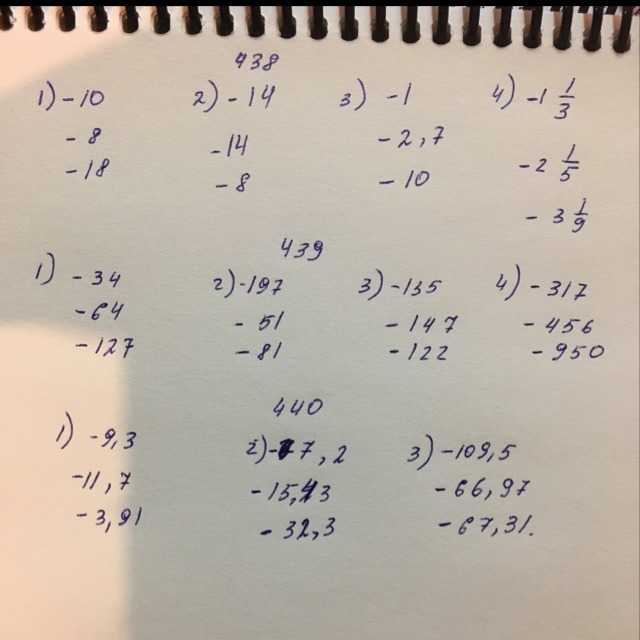 438
1) -10 2) -14 3) -1 4) -1 1/3
-8 -14 -2,7 -2 1/5
-18 -8 -10 -3 1/9
439
1) -34 2) -197 3) -135 4) -317
-64 -51 -147 -456
-127 -81 -122 -950
440
1) -9,3 2) -7,2 3) -109,5
-11,7 -15,43 -66,97
-3,91 -32,3 -67,31.